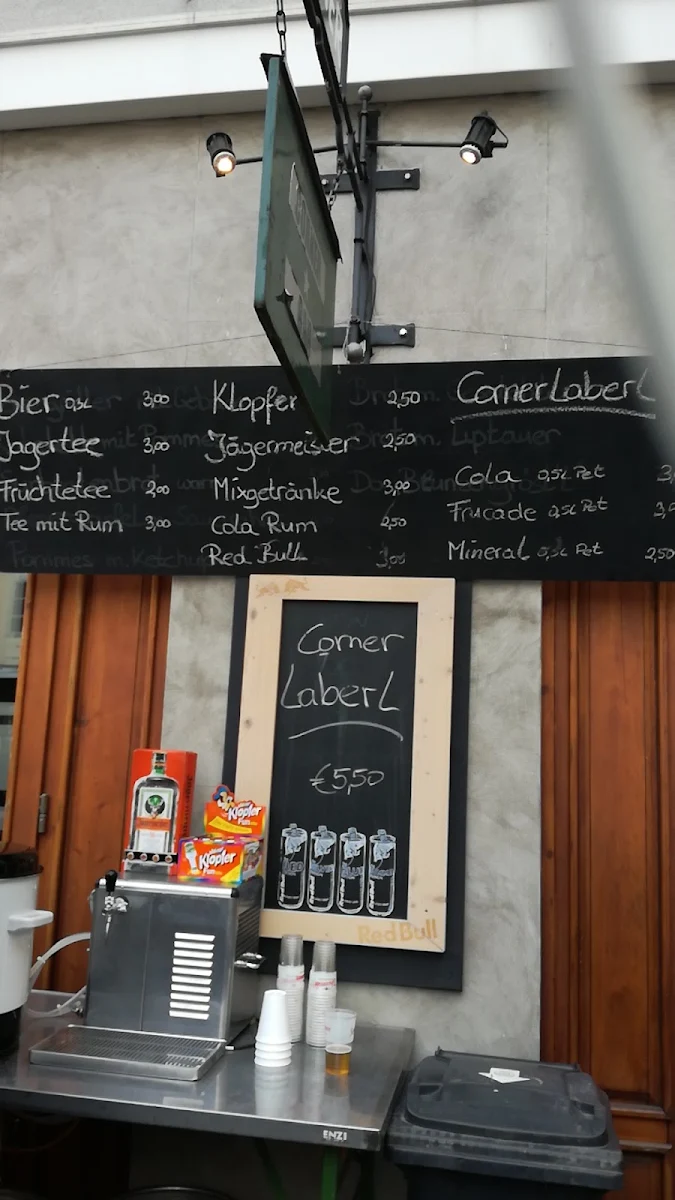 Bier 0,5L 3,00
Jagertee 3,00
Früchtetee 2,00
Tee mit Rum 3,00
Klopfer 2,50
Jägermeister 2,50
Mixgetränke 3,00
Cola Rum 2,50
Red Bull 3,00
CornerLaberL
Cola 0,5L Pet
Frucade 0,5L Pet
Mineral 0,5L Pet 2,50
Corner
LaberL
€5,50
RedBull
Klopfer
Klopfer
ENZI